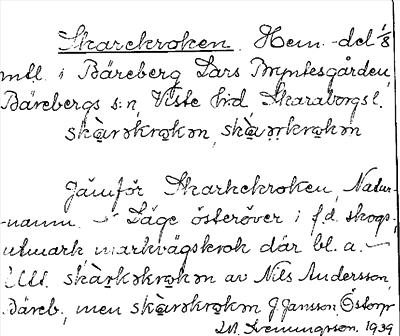 Skarekroken. Hem.-del 1/8
mtl. i Bäreberg Lars Bryntesgården,
Bärebergs s:n, Viste hd, Skaraborgs l.
skàrəkrokən, skàrkrokən
Jämför Skarhekroken, Natur-
-namn. Läge österöver i f.d. skogs-
utmark markvägskrok där bl.a.
Utt. skàrkəkrokən av Nils Andersson,
Bäreb., men skàrəkrokən J. Jansson, Östorp
1939